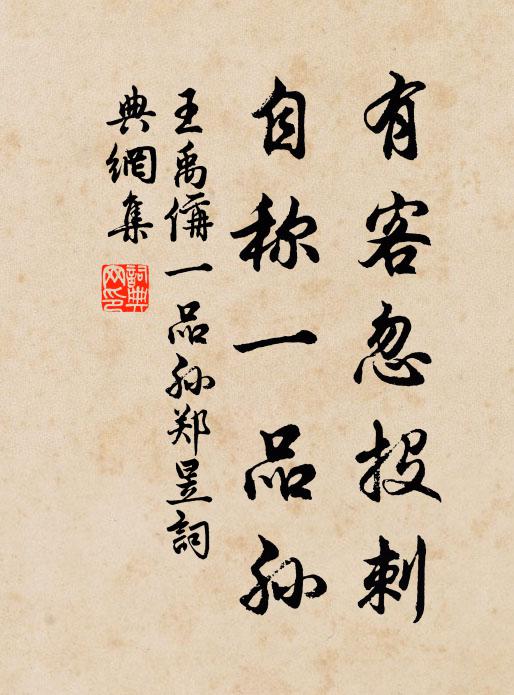 有客忽投刺
自称一品孙
王禹偁一品孙郑昱詞
典網集
詞典网印